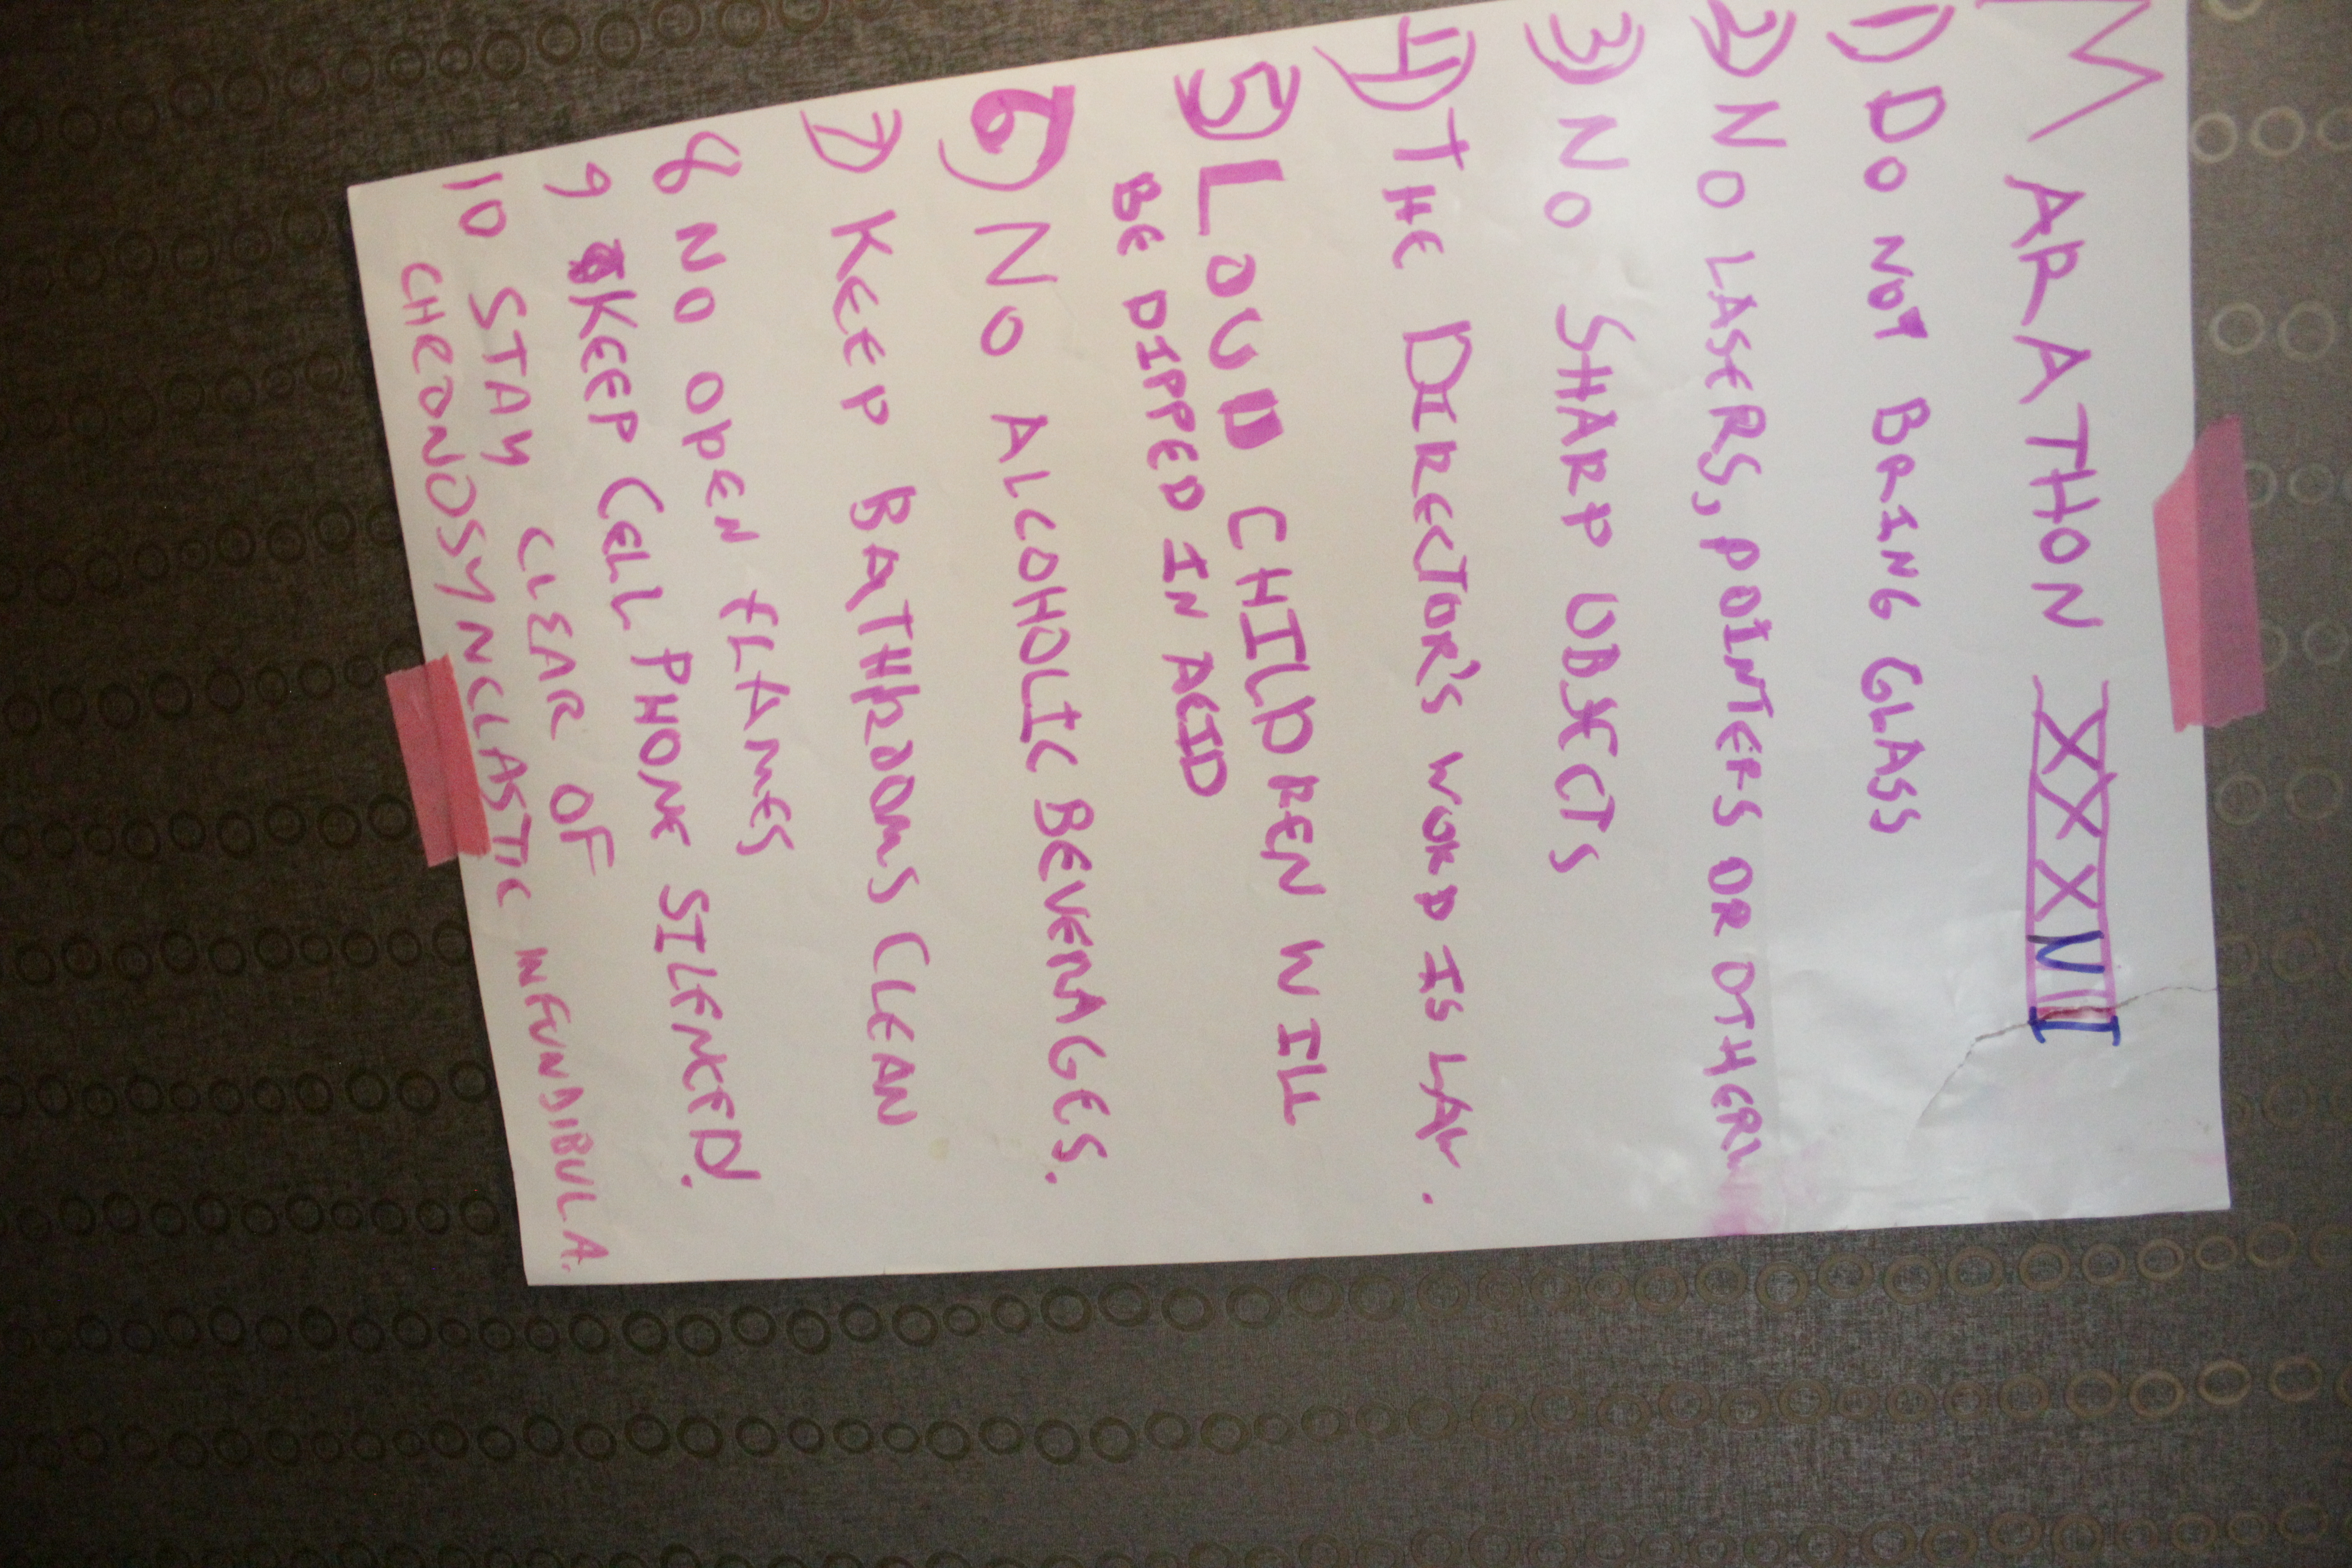 MARATHON XXXVII
1) DO NOT BRING GLASS
2) NO LASERS, POINTERS OR OTHERW
3) NO SHARP OBJECTS
4) THE DIRECTOR'S WORD IS LAW.
5) LOUD CHILDREN WILL
BE DIPPED IN ACID
6) NO ALCOHOLIC BEVERAGES.
7) KEEP BATHROOMS CLEAN
8 NO OPEN FLAMES
9 KEEP CELL PHONE SILENCED.
10 STAY CLEAR OF
CHRONOSYNCLASTIC INFUNDIBULA.